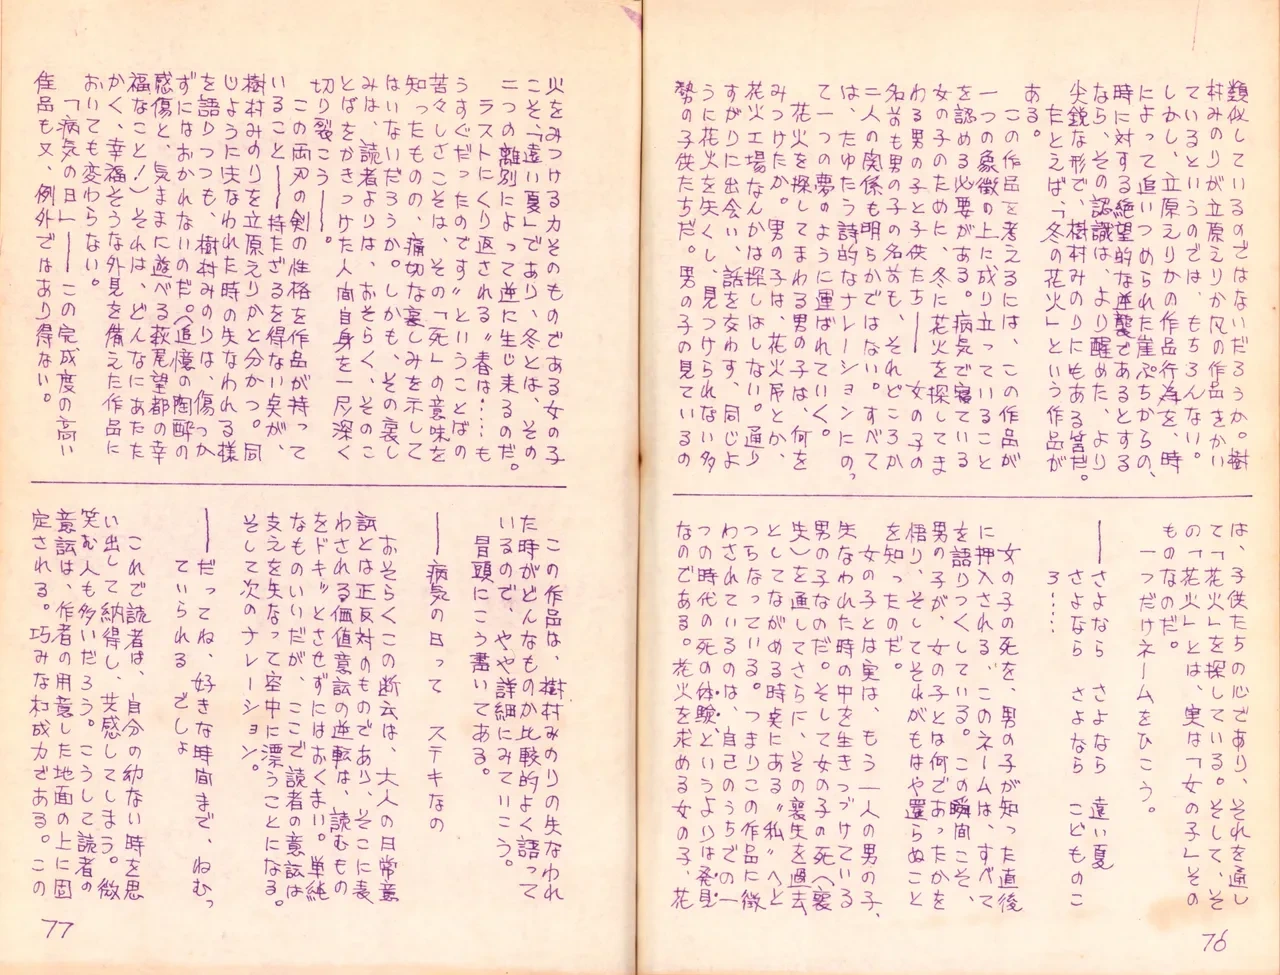 類似しているのではないだろうか。樹
村みのりが立原えりか風の作品をかい
ているというのでは、もちろんない。
しかし、立原えりかの作品行為を、時
によって追いつめられた崖ぷちからの、
時に対する絶望的な逆襲であるとする
なら、その認識は、より醒めた、より
尖鋭な形で、樹村みのりにもある筈だ。
たとえば、「冬の花火」という作品が
ある。
この作品を考えるには、この作品が
一つの象徴の上に成り立っていること
を認める必要がある。病気で寝ている
女の子のために、冬に花火を探してま
わる男の子と子供たち―― 女の子の
名前も男の子の名前も、それどころか
二人の関係も明らかではない。すべて
は、たゆたう詩的なナレーションにの っ
て一つの夢のように運ばれていく。
花火を探してまわる男の子は、何を
みつけたか。男の子は、花火吊とか、
花火工場なんかは探しはしない。通り
すがりに出会い、話を交わす、同じよ
うに花火を失くし、見つけられない多
勢の子供たちだ。男の子の見ているの
は、子供たちの心であり、それを通し
て「花火」を探している。そして、そ
の「花火」とは、実は「女の子」その
ものなのだ。
一つだけネームをひこう。
―― さよなら さよなら 遠い夏
さよなら さよなら こどものこ
ろ‥‥
女の子の死を、男の子が知った直後
に押入される、このネームは、すべて
を語りつくしている。この瞬間こそ、
男の子が、女の子とは何であったかを
悟り、そしてそれがもはや還らぬこと
を知ったのだ。
女の子とは実は、もう一人の男の子、
失なわれた時の中を生きつづけている
男の子なのだ。そして女の子の死(喪
失)を通してさらに、その喪失を過去
としてながめる時点にある〝私〟へと
つらなっている。つまりこの作品に徴
わされているのは、自己のうちでの一
つの時代の死の体験、というよりは発見
なのである。花火を求める女の子、花
76
火をみつける力そのものである女の子
こそ、「遠い夏」であり、冬とは、その
二つの離別によって逆に生じ来るのだ。
ラストにくり返される〝春は‥‥も
うすぐだったのです〟ということばの
苦々しさこそは、その「死」の意味を
知ったものの、痛切な哀しみを示して
はいないだろうか。しかも、その哀し
みは、読者よりは、おそらく、そのこ
とばをかきつけた人間自身を一尺深く
切り裂こう――。
この両刃の剣の性格を作品が持って
いること――持たざるを得ない点が、
樹村みのりを立原えりかと分かつ。同
じようにうしなわれた時の失なわれる様
を語りつつも、樹村みのりは、傷つか
ずにはおかれないのだ。(追憶の陶酔の
感傷と、気ままに遊べる萩尾望都の幸
福なこと!)それは、どんなにあたた
かく、幸福そうな外見を備えた作品に
おいても変わらない。
「病気の日」――この完成度の高い
佳品も又、例外ではあり得ない。
この作品は、樹村みのりの失なわれ
た時がどんなものか比較的よく語って
いるので、やや詳細にみていこう。
冒頭にこう書いてある。
―― 病気の日って ステキなの
おそらくこの断云は、大人の日常意
識とは正反対のものであり、そこに表
わされる価値意識の逆転は、読むもの
をドキッとさせずにはおくまい。単純
なものいいだが、ここで読者の意識は
支えを失なって空中に漂うことになる。
そして次のナレーション。
―― だってね、好きな時間まで、ねむっ
ていられる でしょ
これで読者は、自分の幼ない時を思
い出して納得し、共感してしまう。微
笑む人も多いだろう。こうして読者の
意識は、作者の用意した地面の上に固
定される。巧みな構成力である。この
77